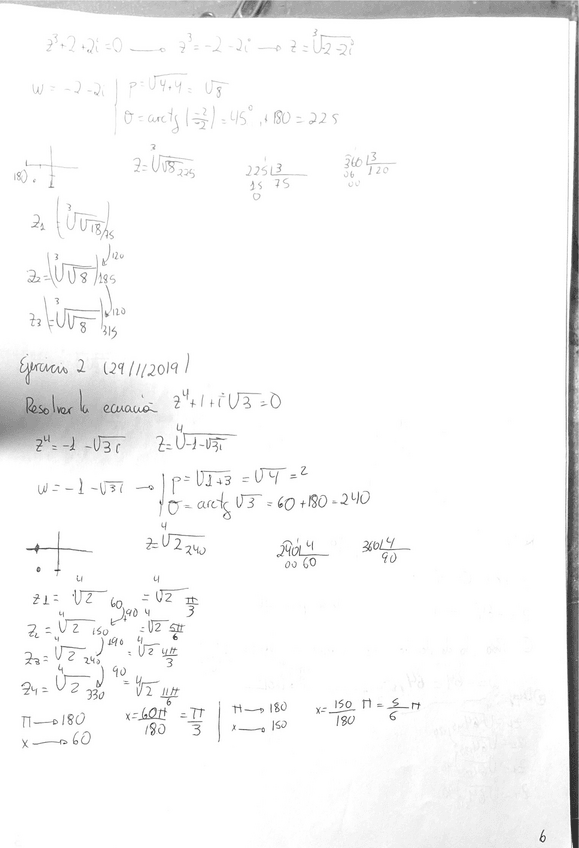 z³+2+2i=0 → z³=-2-2i → z=∛2-2i
w=-2-2i | ρ=√4+4=√8
σ=arctg(-2/-2)=45°,+180=225
180
z=∛√8 225
225 | 3
15 75
0
360 | 3
06 120
00
z1 ∛√18 75
120
z2= ∛√8 195
120
z3= ∛√8 315
Ejercicio 2 (29/1/2019)
Resolver la ecuación z⁴+1+i√3=0
z⁴=-1-√3i z=∜-1-√3i
w=-1-√3i → ρ=√1+3=√4=2
σ=arctg √3=60+180=240
z=∜2 240
240 | 4
00 60
360 | 4
90
z1=∜2 60 =∜2 π/3
90
z2=∜2 150 =∜2 5π/6
190
z3=∜2 240 =∜2 4π/3
90
z4=∜2 330 =∜2 11π/6
π→180 x=60π/180=π/3
x→60
π→180 x=150/180 π=5/6 π
x→150
6